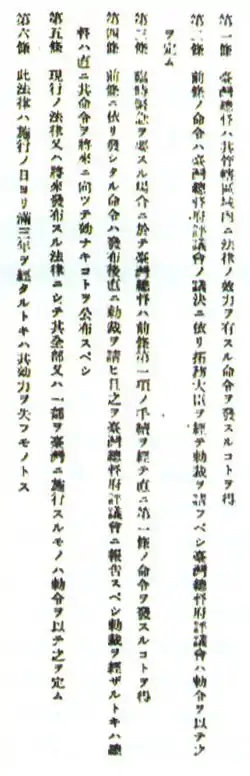 第一條　臺灣總督ハ其管轄區域內ニ法律ノ效力ヲ有スル命令ヲ發スルコトヲ得
第二條　前條ノ命令ハ臺灣總督府評議會ノ議決ニ依リ拓務大臣ヲ經テ勅裁ヲ請フヘシ臺灣總督府評議會ハ勅令ヲ以テ之
ヲ定ム
第三條　臨時緊急ヲ要スル場合ニ於テ臺灣總督ハ前條第一項ノ手續ヲ經テ直ニ第一條ノ命令ヲ發スルコトヲ得
第四條　前條ニ依リ發シタル命令ハ發布後直ニ勅裁ヲ請ヒ且之ヲ臺灣總督府評議會ニ報告スベシ勅裁ヲ經ザルトキハ總
督ハ直ニ其命令ヲ將來ニ向ツテ効ナキコトヲ公布スベシ
第五條　現行ノ法律又ハ將來發布スル法律ニシテ其全部又ハ一部ヲ臺灣ニ施行スルモノハ勅令ヲ以テ之ヲ定ム
第六條　此法律ハ施行ノ日ヨリ滿三年ヲ經タルトキハ其効力ヲ失フモノトス